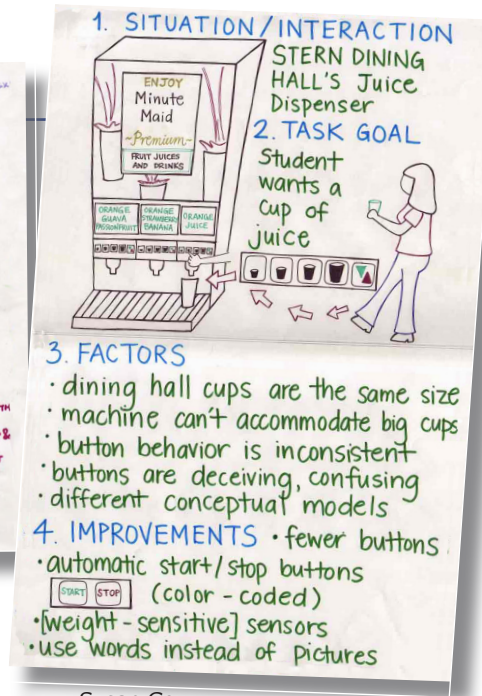 1. SITUATION/INTERACTION
STERN DINING
HALL'S Juice
Dispenser
ENJOY
Minute
Maid
-Premium-
FRUIT JUICES
AND DRINKS
2. TASK GOAL
Student
wants a
cup of
juice
ORANGE
GUAVA
PASSIONFRUIT
ORANGE
STRAWBERRY
BANANA
ORANGE
JUICE
3. FACTORS
• dining hall cups are the same size
• machine can't accommodate big cups
• button behavior is inconsistent
• buttons are deceiving, confusing
• different conceptual models
4. IMPROVEMENTS • fewer buttons
• automatic start/stop buttons
START STOP (color-coded)
• [weight-sensitive] sensors
• use words instead of pictures